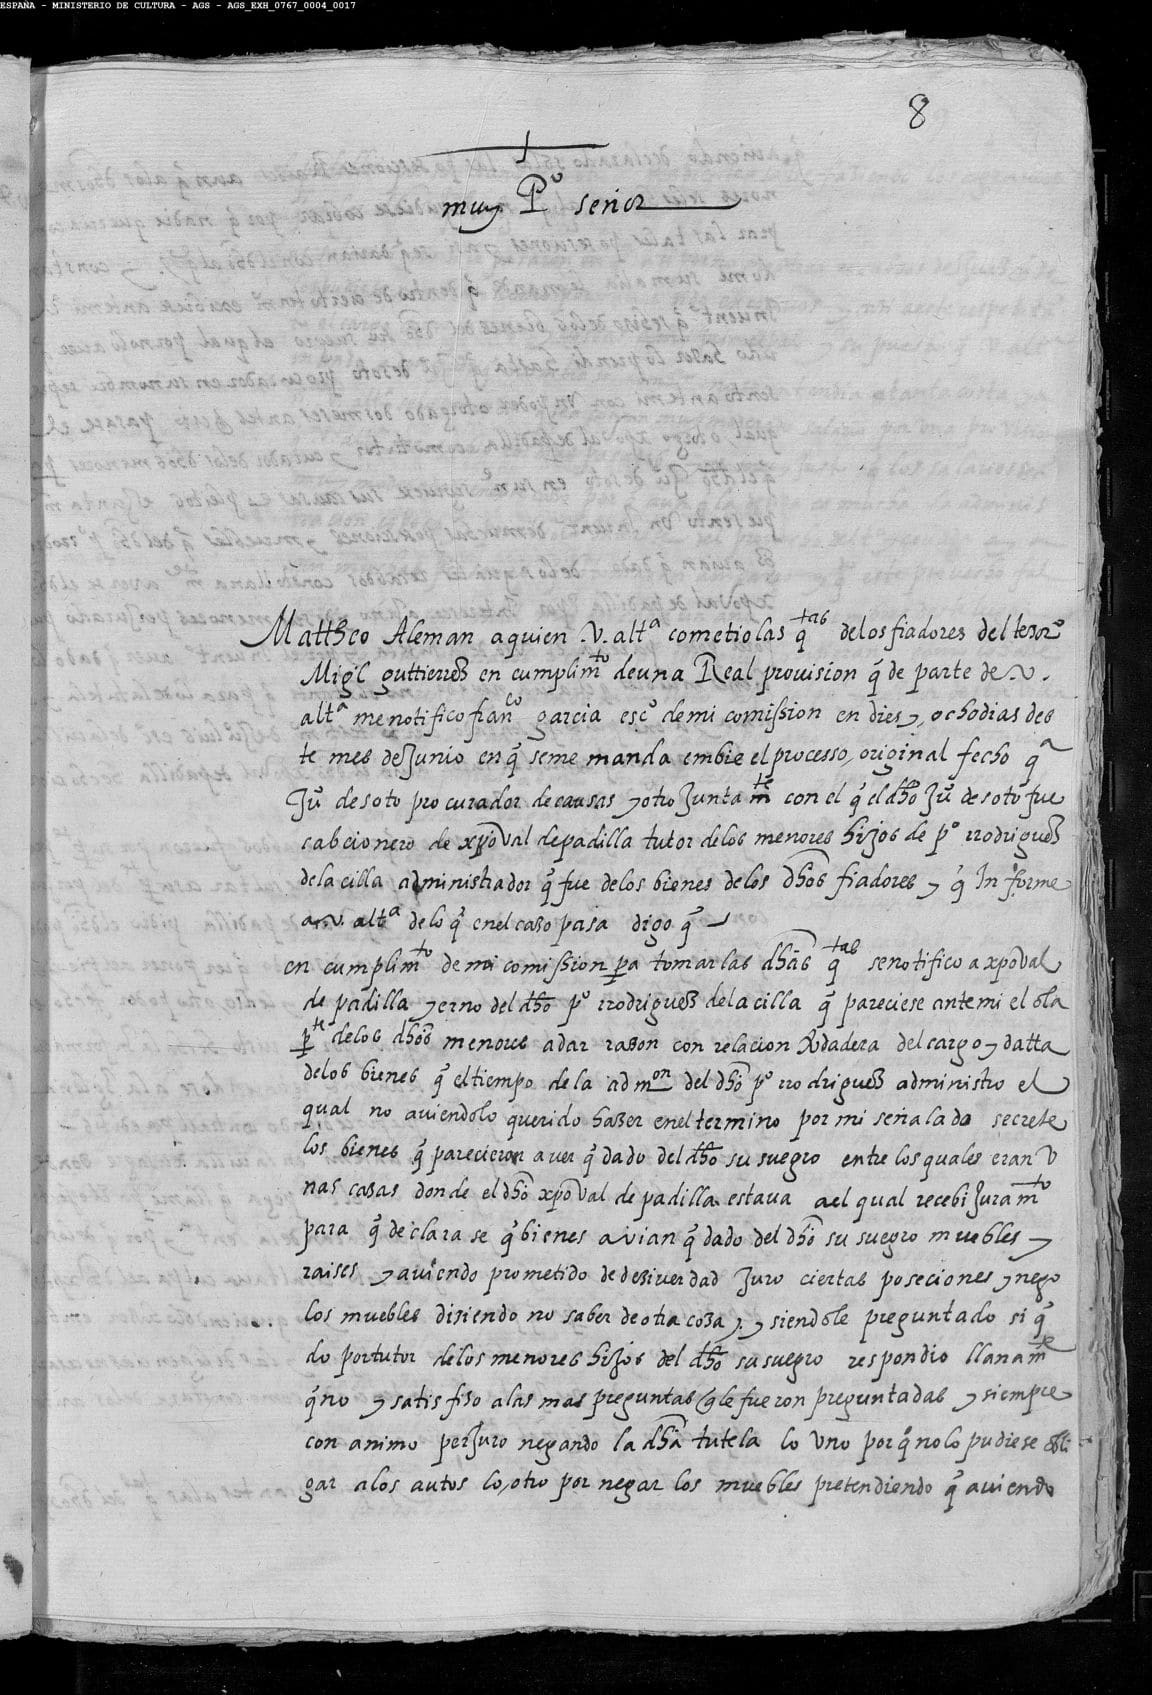 ESPAÑA - MINISTERIO DE CULTURA - AGS - AGS_EXH_0767_0004_0017
8
muy Pº señor
Mattheo Aleman a quien .V. altª cometio las qtas delos fiadores del tesorº
Migl guttierrez en cumplimto de una Real provision q̃ de parte de .v.
altª me notifico franco garcia escº de mi comission en dies y ochodias des
te mes de Junio en q̃ se me manda embie el processo, original fecho qª
Juº de soto procurador de causas y otro Junta mte con el q̃ el dho Juº de soto fue
cabcionero de xpoval de padilla tutor delos menores hijos de pº rrodriguez
dela cilla administrador q̃ fue delos bienes delos dhos fiadores y q̃ In forme
a .v. altª delo q̃ enel caso pasa digo q̃
en cumplimto de mi comission pa tomar las dhas qtas se notifico a xpoval
de padilla yerno del dho pº rrodriguez dela cilla q̃ pareciese ante mi el o la
pte delos dhos menores a dar razon con relacion Vdadera del cargo y datta
delos bienes q̃ el tiempo dela admon del dho pº rrodriguez administro el
qual no aviendolo querido hazer enel termino por mi señalado secrete
los bienes q̃ parecieron aver q̃dado del dho su suegro entre los quales eran V
nas casas donde el dho xpoval de padilla estava ael qual recebi Juramto
para q̃ declarase q̃ bienes avian q̃dado del dho su suegro muebles y
raises y aviendo prometido de dezir verdad Juro ciertas poseciones y nego
los muebles disiendo no saber de otra coza y siendole preguntado si q̃
do por tutor delos menores hijos del dho su suegro respondio llanamte
q̃ no y satisfiso alas mas preguntas q̃le fueron preguntadas y siempre
con animo perJuro negando la dha tutela lo Vno porq̃ no lo pudiese obli
gar alos autos lo, otro por negar los muebles pretendiendo q̃ aviendo